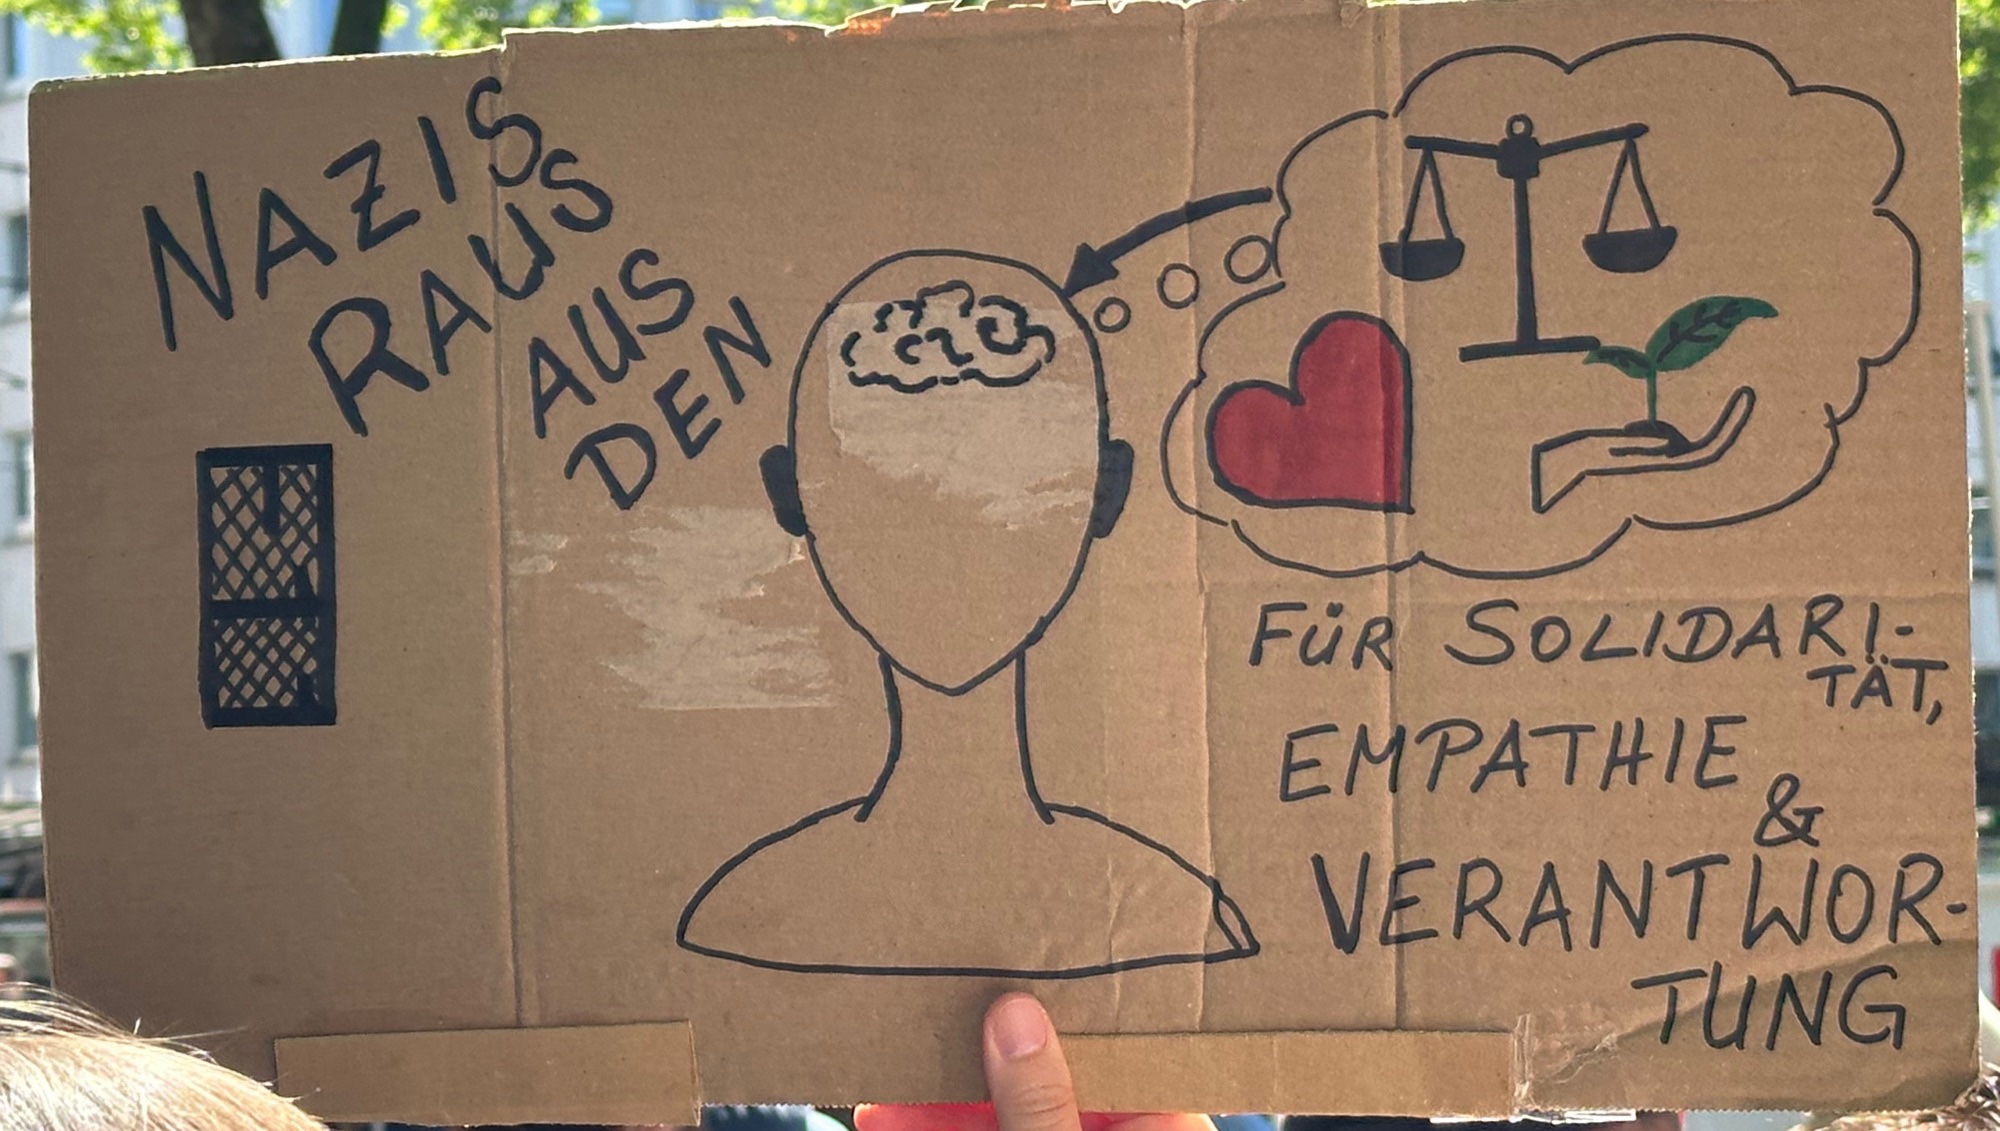 NAZIS
RAUS
AUS
DEN
FÜR SOLIDARI-
TÄT,
EMPATHIE
&
VERANTWOR-
TUNG